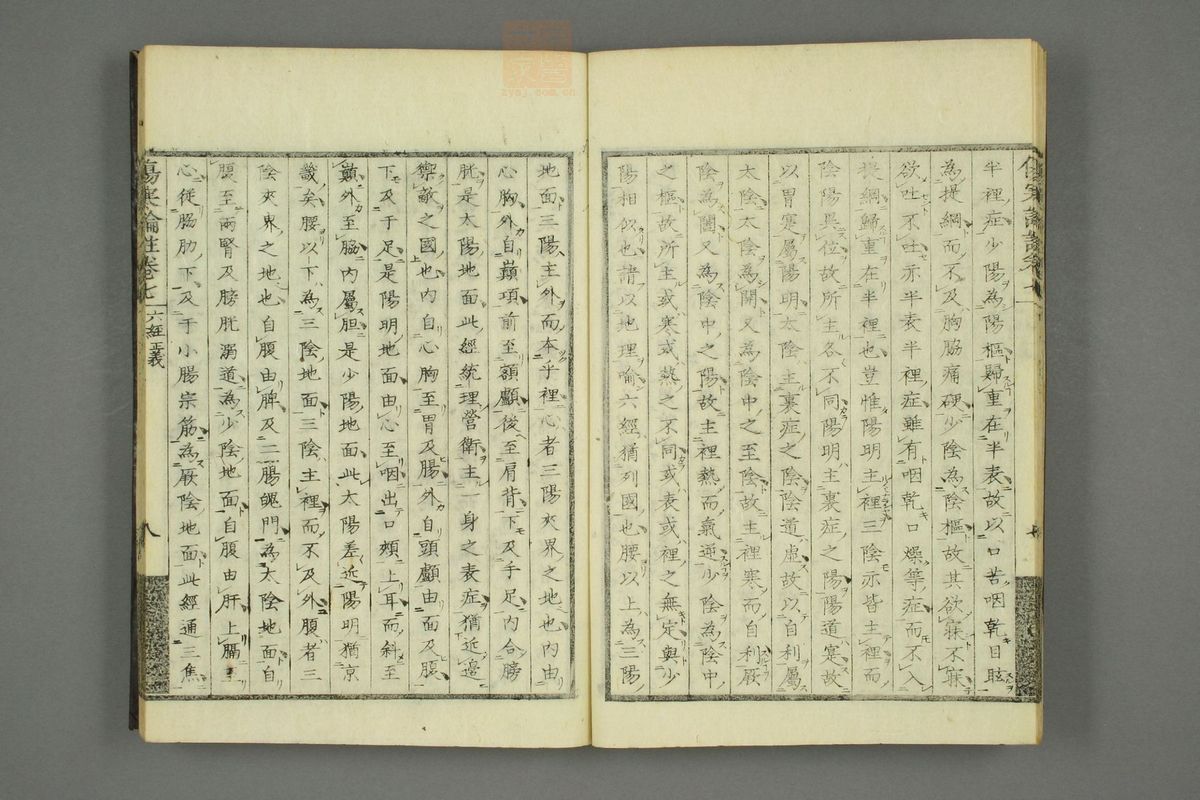 半裡症少陽為陽樞歸重在半表故以口苦咽乾目眩
為提綱而不及胸脇痛硬少陰為陰樞故其欲寐不寐
欲吐不吐亦半表半裡症雖有咽乾口燥等症而不入
提綱歸重在半裡也豈惟陽明主裡三陰亦皆主裡而
陰陽異位故所主各不同陽明主裏症之陽陽道寔故
以胃寔屬陽明太陰主裏症之陰陰道虛故以自利屬
太陰太陰為開又為陰中之至陰故主裡寒而自利厥
陰為闔又為陰中之陽故主裡熱而氣逆少陰為陰中
之樞故所主或寒或熱之不同或表或裡之無定與少
陽相似也請以地理喻六經猶列國也腰以上為三陽
地面三陽主外而本乎裡心者三陽夾界之地也内由
心胸外自巔項前至額顱後至肩背下及于足内合膀
胱是太陽地面此經統理營衛主一身之表症猶近邊
禦敵之國也内自心胸至胃及腸外自頭顱由面及腹
下及于足是陽明地面由心至咽出口頰上耳而斜至
巔外至脇内屬胆是少陽地面此太陽差近陽明猶京
畿矣腰以下為三陰地面三陰主裡而不及外腹者三
陰夾界之地也自腹由脾及二腸魄門為太陰地面自
腹至兩腎及膀胱溺道為少陰地面自腹由肝上膈至
心從脇肋下及于小腸宗筋為厥陰地面此經通三焦
傷寒論註卷七
六經正義
八